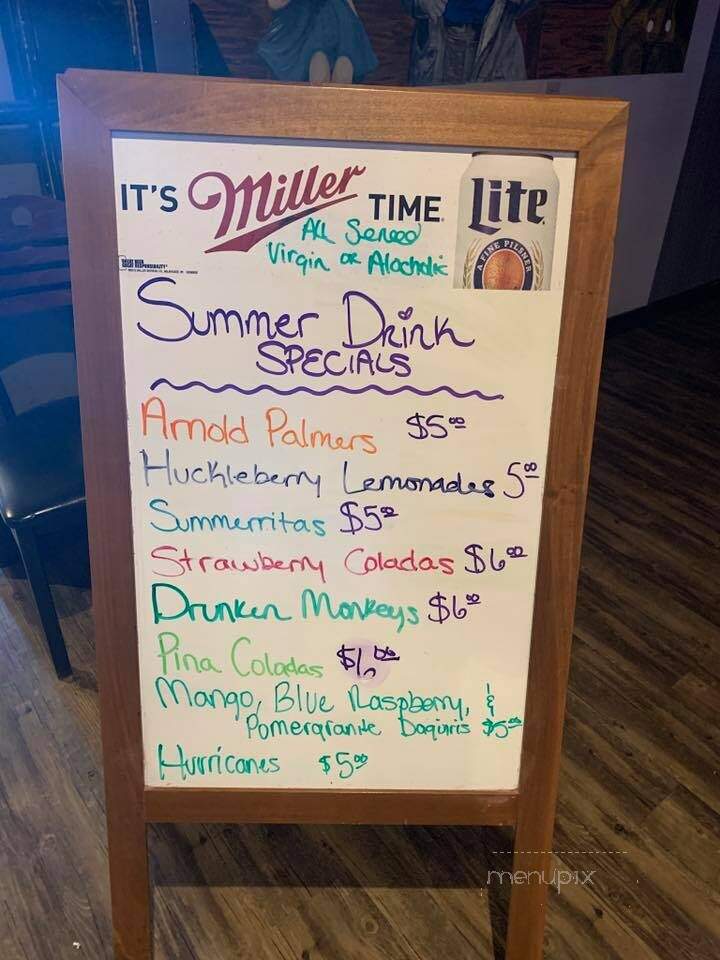 IT'S Miller TIME Lite
A FINE PILSNER
All Served
Virgin or Alocholic
Summer Drink
SPECIALS
Arnold Palmers $5.00
Huckleberry Lemonades 5.00
Summerritas $5.00
Strawberry Coladas $6.00
Drunken Monkeys $6.00
Pina Coladas $6.00
Mango, Blue Raspberry, &
Pomergranite Daquiris $5.00
Hurricanes $5.00
menupix